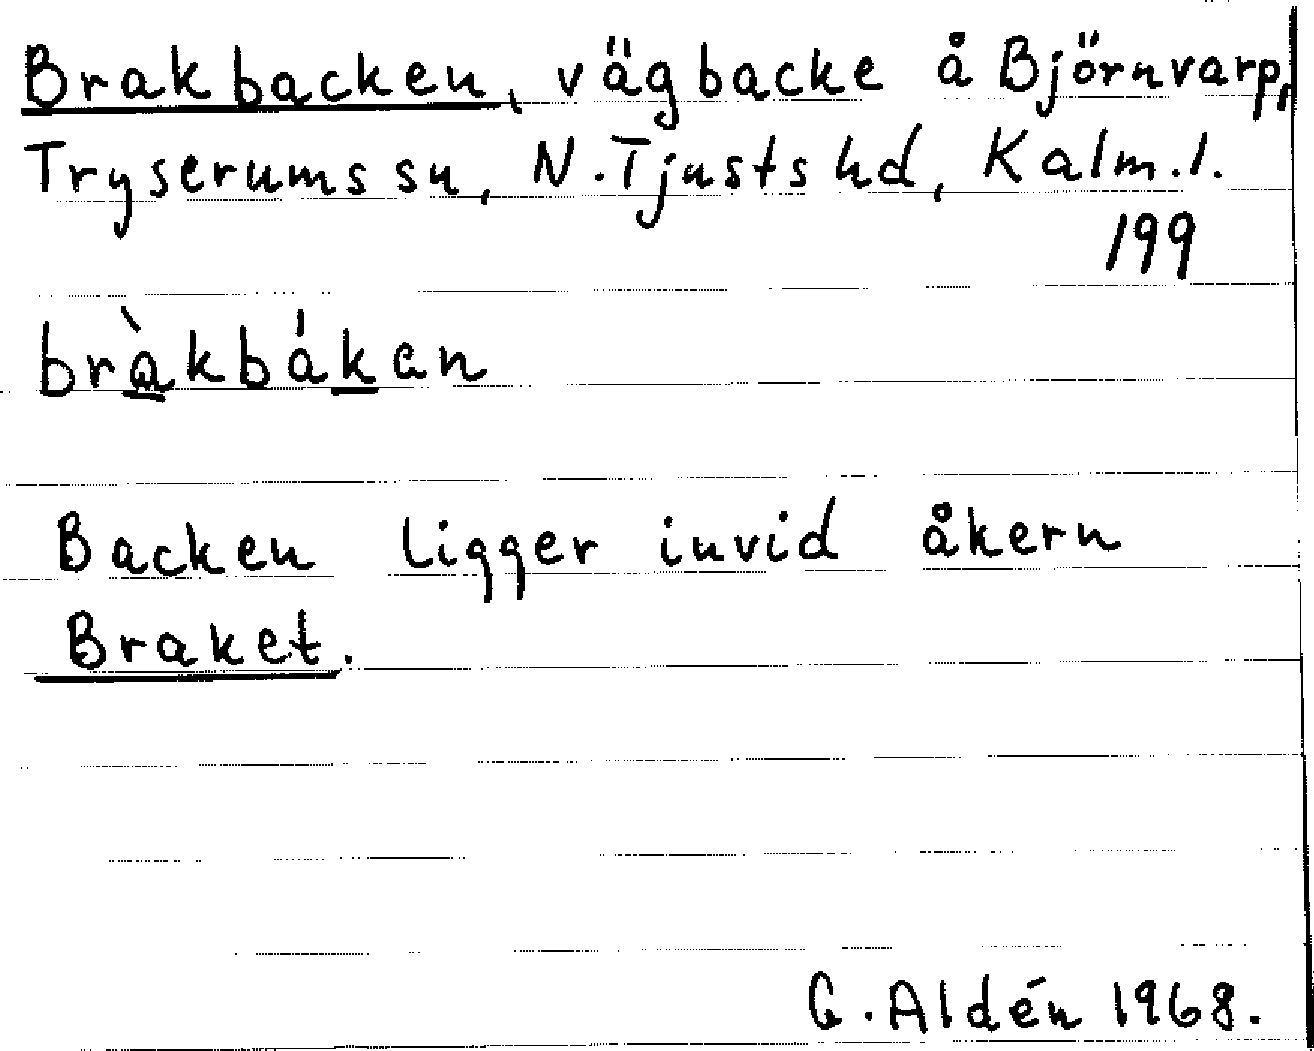 Brakbacken, vägbacke å Björnvarp,
Tryserums sn, N. Tjusts hd, Kalm. l.
199
bràkbákan
Backen ligger invid åkern
Braket.
G. Aldén 1968.